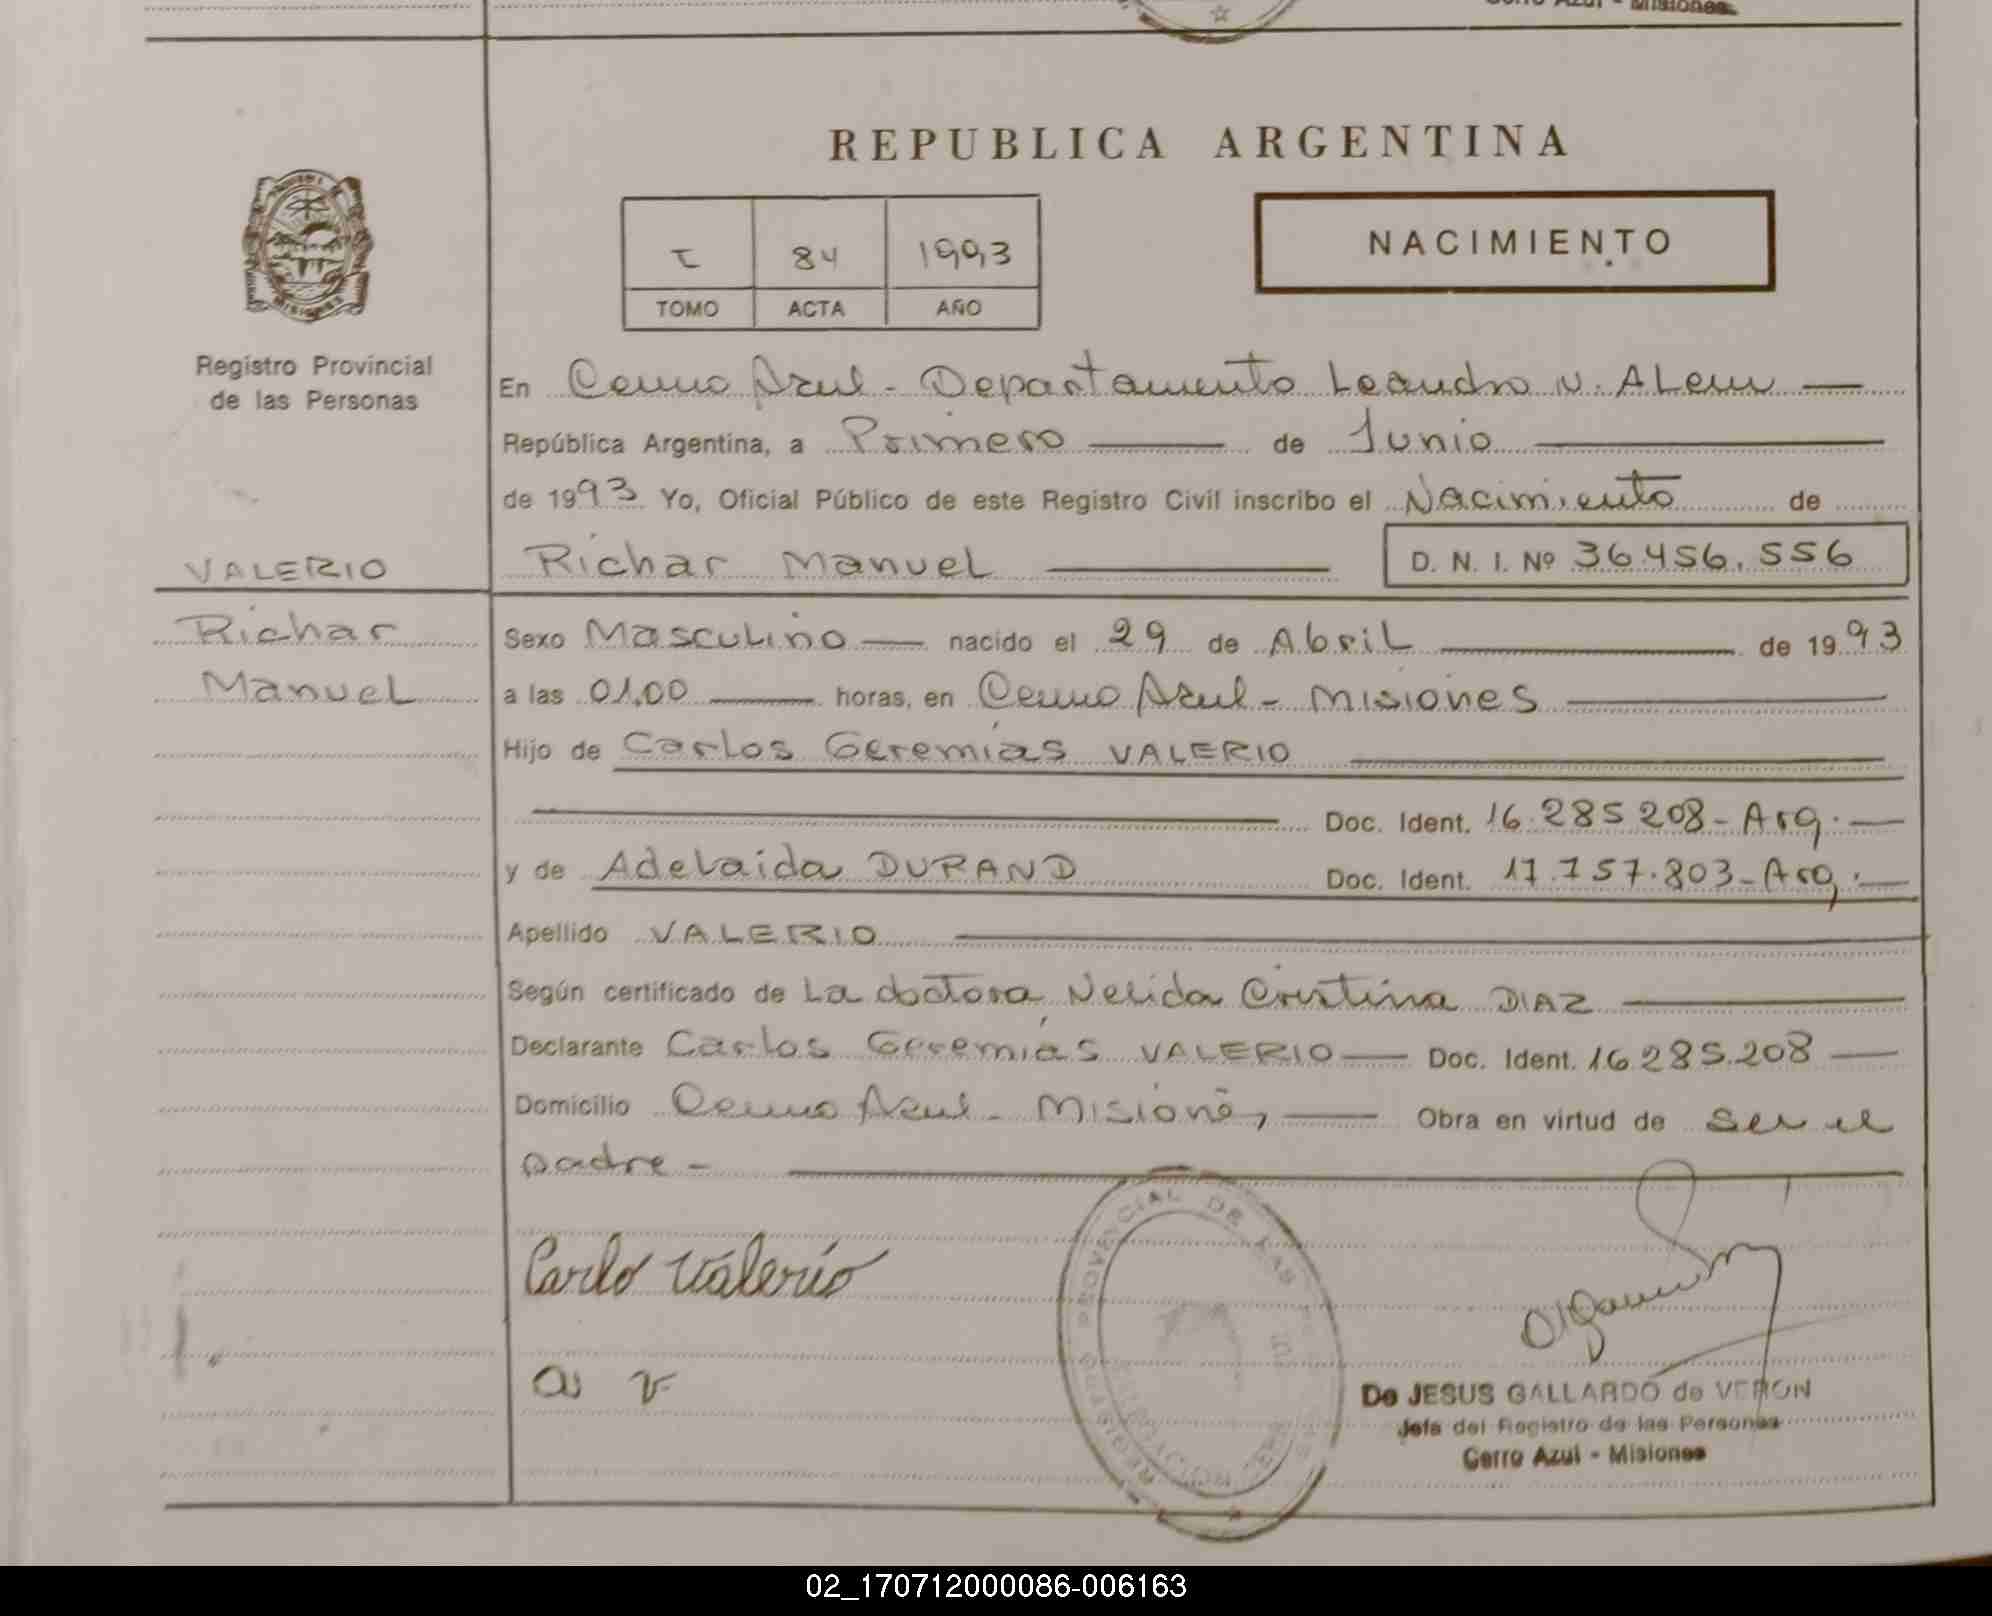 Cerro Azul - Misiones
REPUBLICA ARGENTINA
NACIMIENTO
I 84 1993
TOMO ACTA AÑO
Registro Provincial
de las Personas
En Cerro Azul - Departamento Leandro N. ALem
República Argentina, a Primero de Junio
de 1993 Yo, Oficial Público de este Registro Civil inscribo el Nacimiento de
VALERIO
Richar Manuel D. N. I. Nº 36.456.556
Richar
Manuel
Sexo Masculino nacido el 29 de Abril de 1993
a las 01,00 horas, en Cerro Azul - Misiones
Hijo de Carlos Geremías VALERIO
Doc. Ident. 16.285.208 - Arg.
y de Adelaida DURAND Doc. Ident. 17.757.803 - Arg.
Apellido VALERIO
Según certificado de La doctora Nelida Cristina DIAZ
Declarante Carlos Geremías VALERIO Doc. Ident. 16.285.208
Domicilio Cerro Azul - Misiones, Obra en virtud de ser el
padre -
Carlo Valerio
REGISTRO PROVINCIAL DE LAS
De JESUS GALLARDO de VERON
Jefa del Registro de las Personas
Cerro Azul - Misiones
02_170712000086-006163